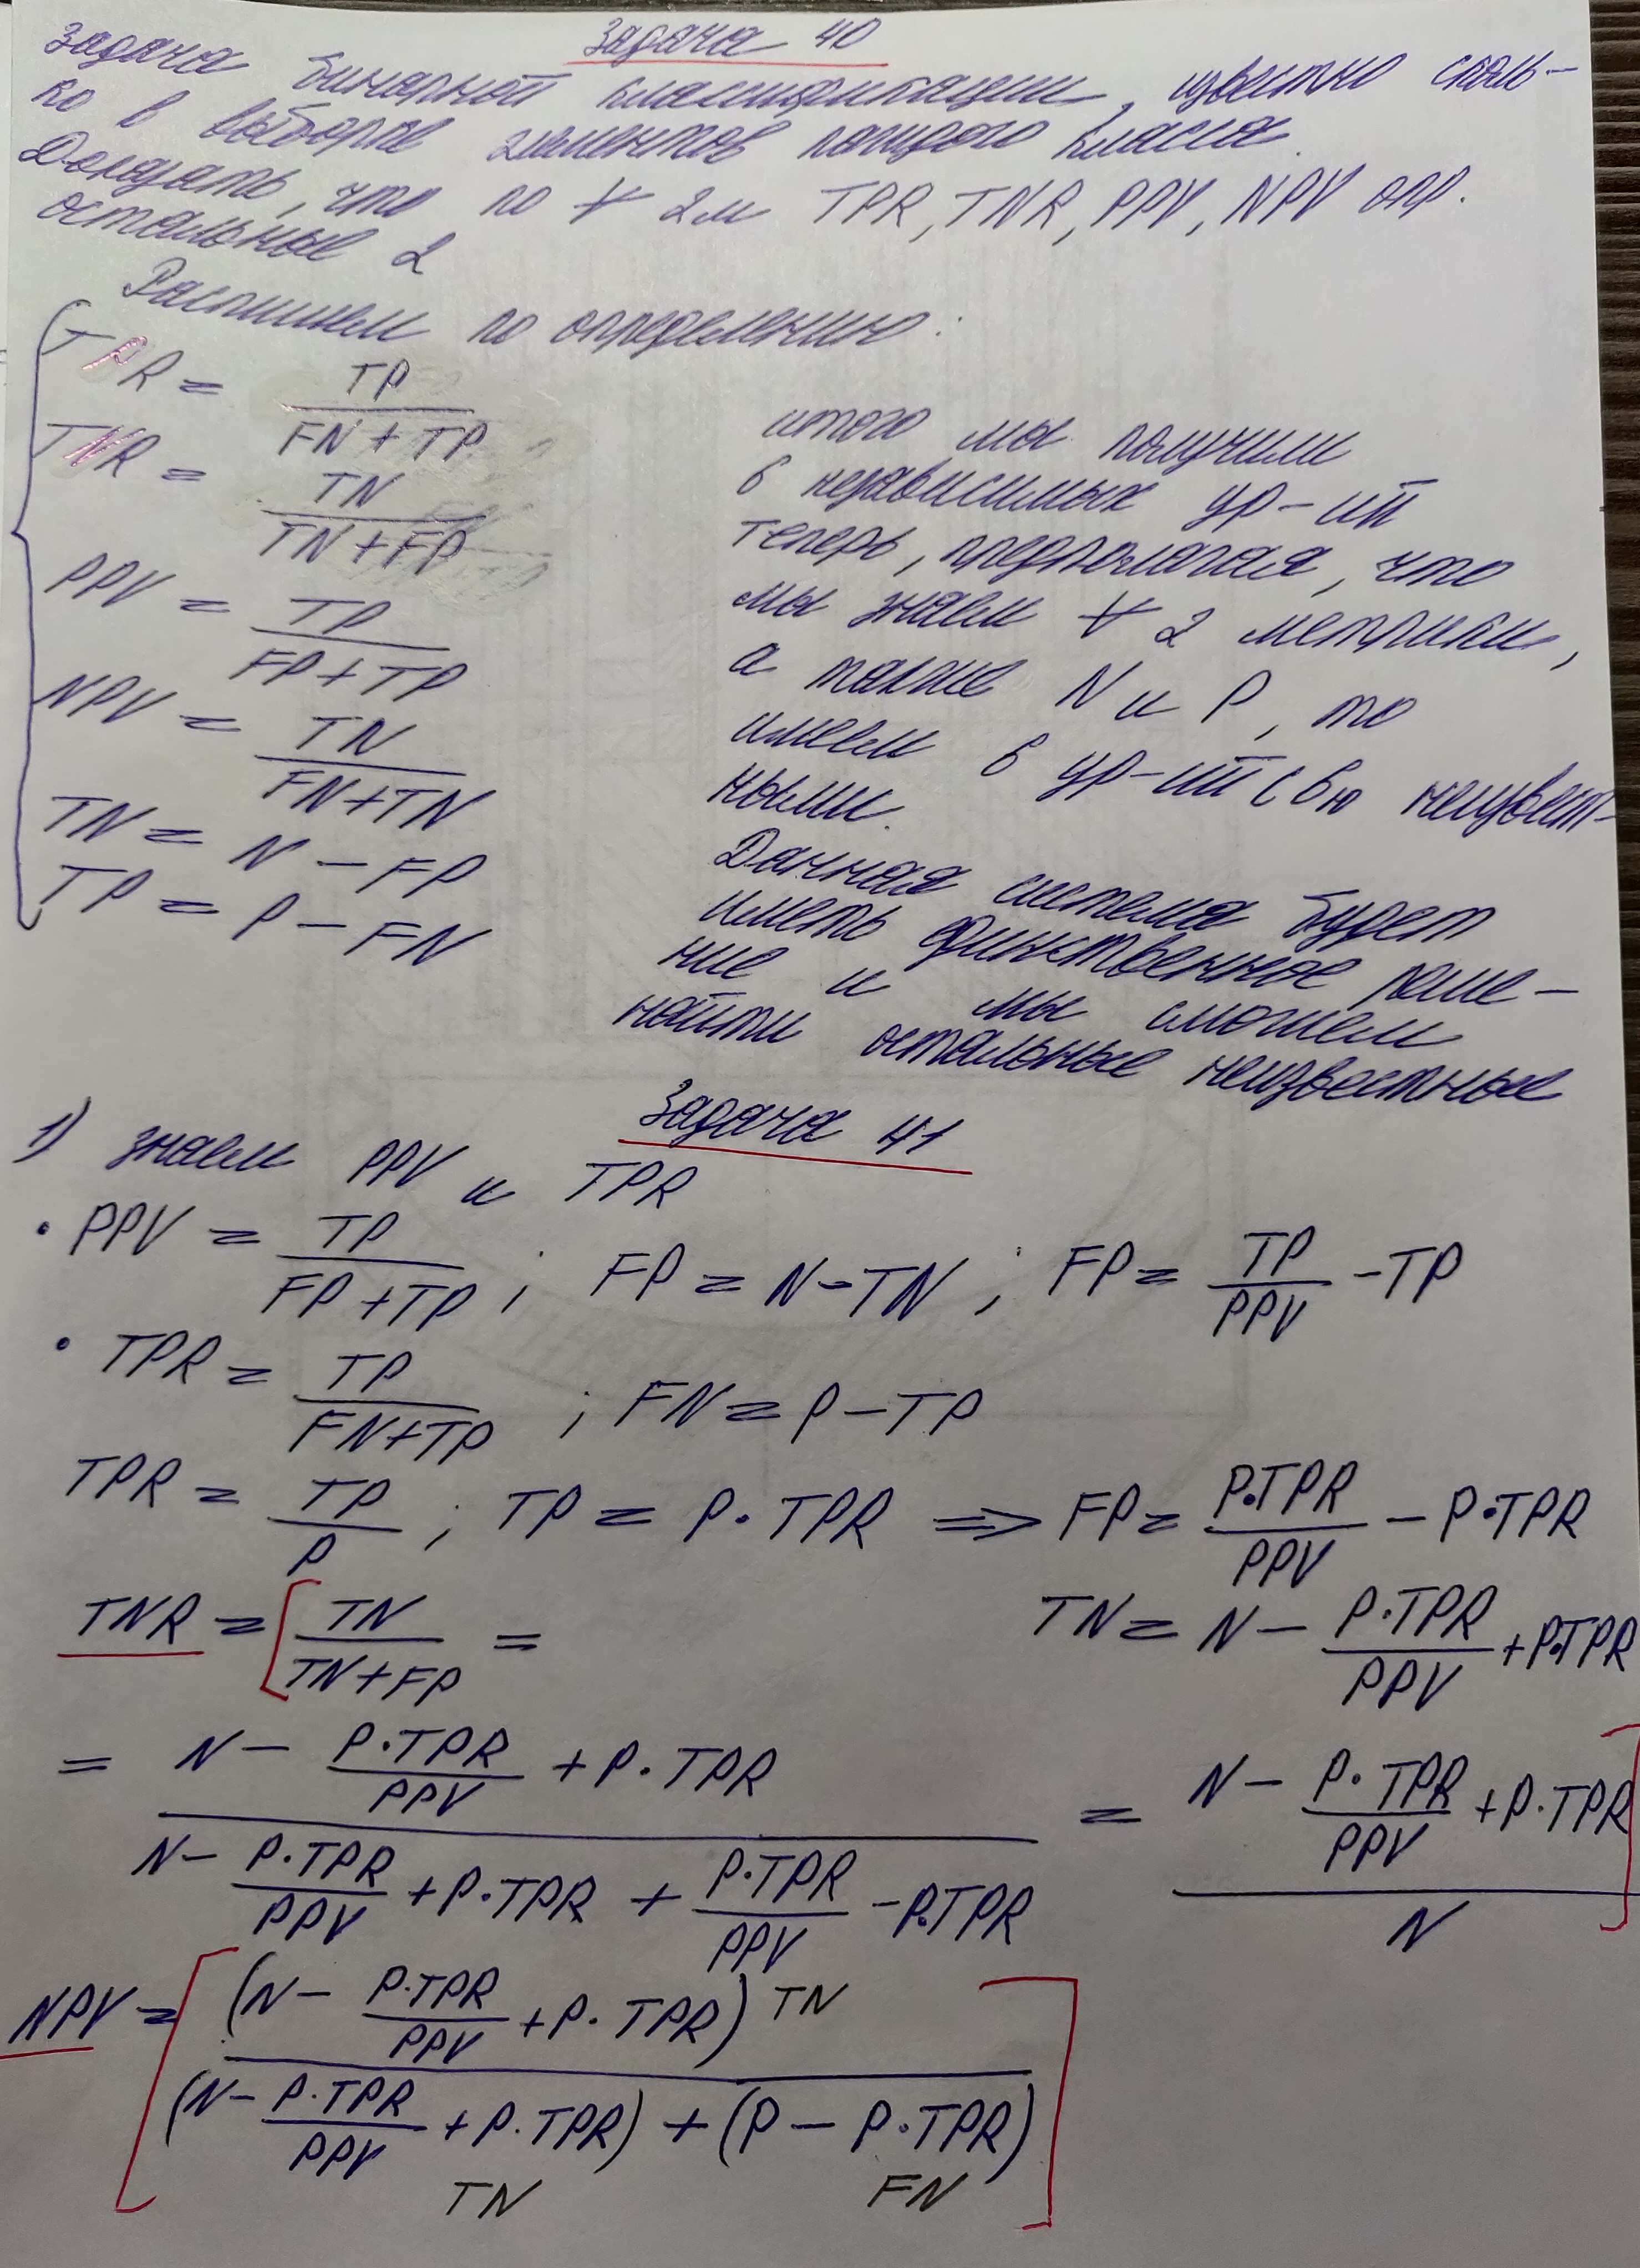 Задача 40
Задача бинарной классификации, известно сколь-
ко в выборке элементов каждого класса.
Доказать, что по ∀ 2м TPR, TNR, PPV, NPV опр.
остальные 2
Распишем по определению:
TPR = TP / (FN + TP)
TNR = TN / (TN + FP)
PPV = TP / (FP + TP)
NPV = TN / (FN + TN)
TN = N - FP
TP = P - FN
итого мы получили
6 независимых ур-ий
теперь, предполагая, что
мы знаем ∀ 2 метрики,
а также N и P, то
имеем 6 ур-ий с 6ю неизвест-
ными.
Данная система будет
иметь единственное реше-
ние и мы сможем
найти остальные неизвестные
Задача 41
1) знаем PPV и TPR
• PPV = TP / (FP + TP) ; FP = N - TN ; FP = TP / PPV - TP
• TPR = TP / (FN + TP) ; FN = P - TP
TPR = TP / P ; TP = P · TPR => FP = P·TPR / PPV - P·TPR
TN = N - P·TPR / PPV + P·TPR
TNR = [ TN / (TN + FP) =
= (N - P·TPR / PPV + P·TPR) / (N - P·TPR / PPV + P·TPR + P·TPR / PPV - P·TPR) = (N - P·TPR / PPV + P·TPR) / N ]
NPV = [ (N - P·TPR / PPV + P·TPR) TN
(N - P·TPR / PPV + P·TPR) + (P - P·TPR) ]
TN FN